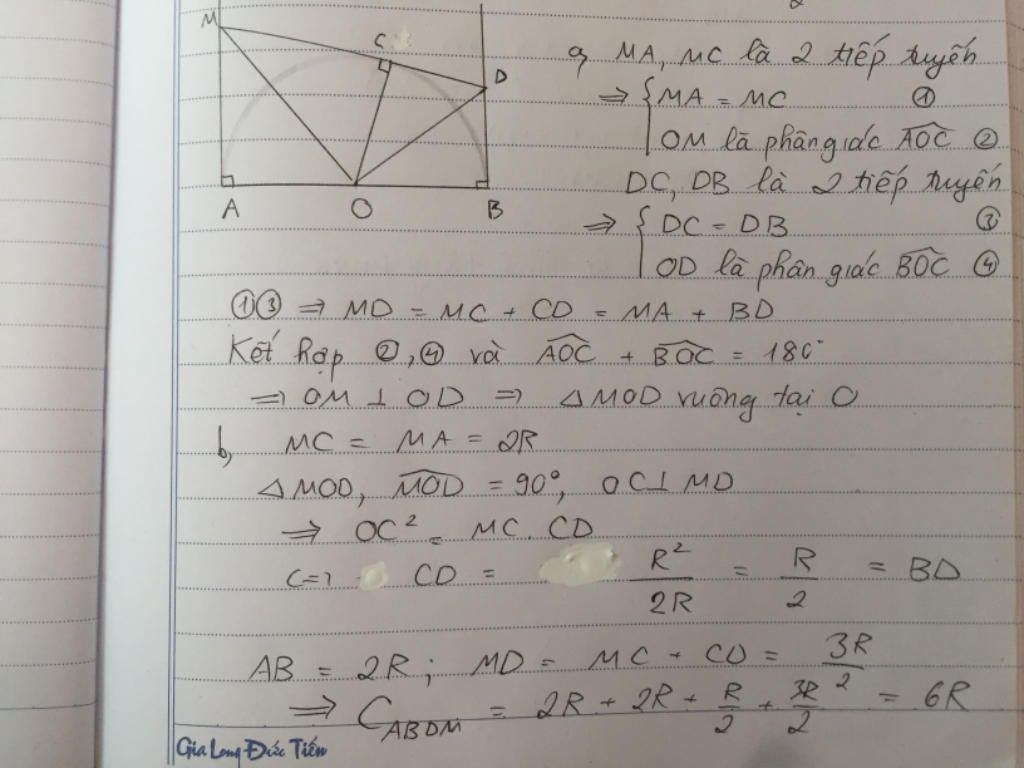 M
C
D
A
O
B
a, MA, MC là 2 tiếp tuyến
⇒ { MA = MC ①
OM là phân giác AOC ②
DC, DB là 2 tiếp tuyến
⇒ { DC = DB ③
OD là phân giác BOC ④
①③ ⇒ MD = MC + CD = MA + BD
Kết hợp ②,④ và AOC + BOC = 180°
⇒ OM ⊥ OD ⇒ △MOD vuông tại O
b, MC = MA = 2R
△MOD, MOD = 90°, OC ⊥ MD
⇒ OC² = MC. CD
<=> CD = R²/2R = R/2 = BD
AB = 2R; MD = MC + CD = 3R/2
⇒ C_ABDM = 2R + 2R + R/2 + 3R/2 = 6R
Gia Long Đức Tiến